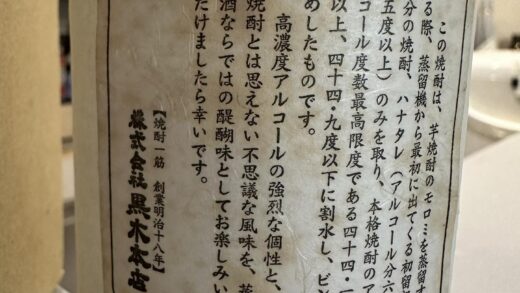 この焼酎は、芋焼酎のモロミを蒸留す
る際、蒸留機から最初に出てくる初留
分の焼酎、ハナタレ（アルコール分六
五度以上）のみを取り、本格焼酎のア
コール度数最高限度である四十四・
以上、四十四・九度以下に割水し、ビン
めしたものです。
高濃度アルコールの強烈な個性と、
焼酎とは思えない不思議な風味を、蒸
酒ならではの醍醐味としてお楽しみい
だけましたら幸いです。
【焼酎一筋 創業明治十八年】
株式会社黒木本店